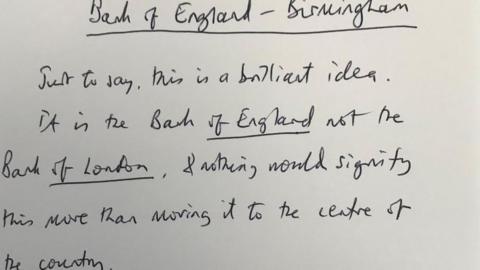 Bank of England - Birmingham
Just to say, this is a brilliant idea.
It is the Bank of England not the
Bank of London, & nothing would signify
this more than moving it to the centre of
the country.